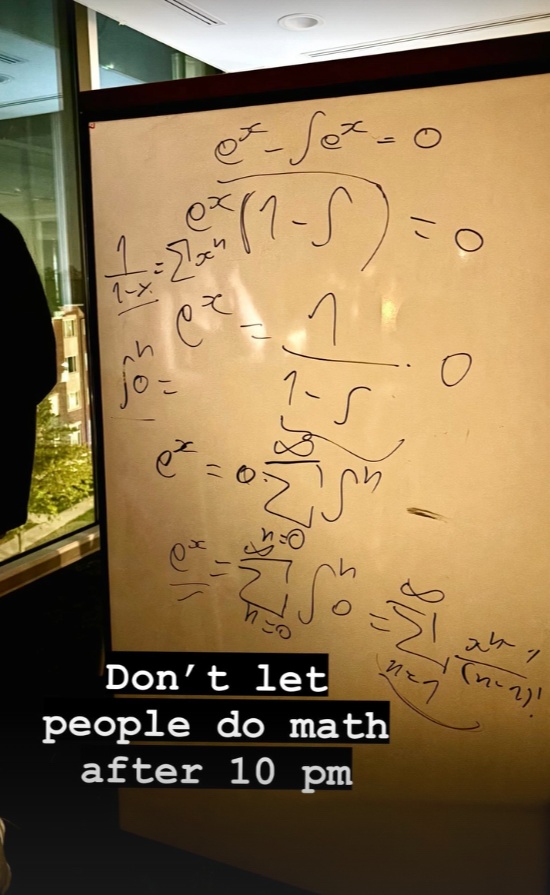 eˣ - ∫eˣ = 0
eˣ(1 - ∫) = 0
1/(1-x) = ∑xⁿ
eˣ = 1/(1-∫) · 0
∫ⁿ0 =
eˣ = 0·∑_{n=0}^{∞} ∫ⁿ
eˣ = ∑_{n=0}^{∞} ∫ⁿ0 = ∑_{n=1}^{∞} xⁿ⁻¹/(n-1)!
Don't let
people do math
after 10 pm